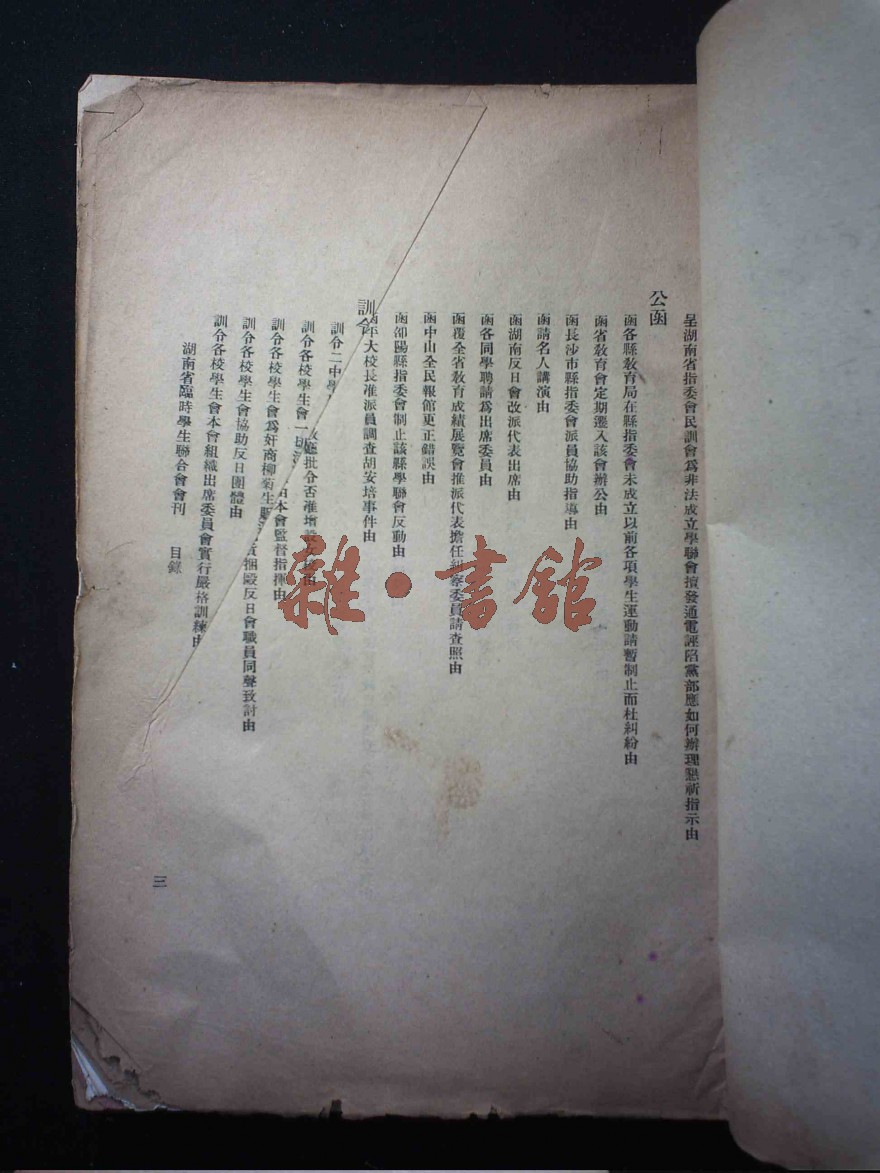 呈湖南省指委會民訓會爲非法成立學聯會擅發通電誣陷黨部應如何辦理懇祈指示由
公函
函各縣教育局在縣指委會未成立以前各項學生運動請暫制止而杜糾紛由
函省教育會定期遷入該會辦公由
函長沙市縣指委會派員協助指導由
函請名人講演由
函湖南反日會改派代表出席由
函各同學聘請爲出席委員由
函覆全省教育成績展覽會推派代表擔任糾察委員請查照由
函中山全民報館更正錯誤由
函邵陽縣指委會制止該縣學聯會反動由
大校長准派員調查胡安培事件由
訓令
訓令二中學 廳批令否准增設
訓令各校學生會一 由本會監督指揮由
訓令各校學生會爲奸商柳菊生 捆毆反日會職員同聲致討由
訓令各校學生會協助反日團體由
訓令各校學生會本會組織出席委員會實行嚴格訓練由
湖南省臨時學生聯合會會刊 目錄
三
雜·書館